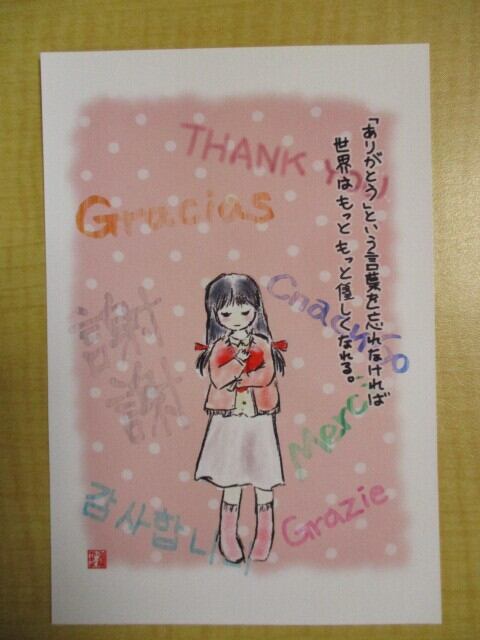 「ありがとう」という言葉を忘れなければ
世界はもっともっと優しくなれる。
THANK YOU
Gracias
Спасибо
謝
謝
Merci
감사합니다
Grazie